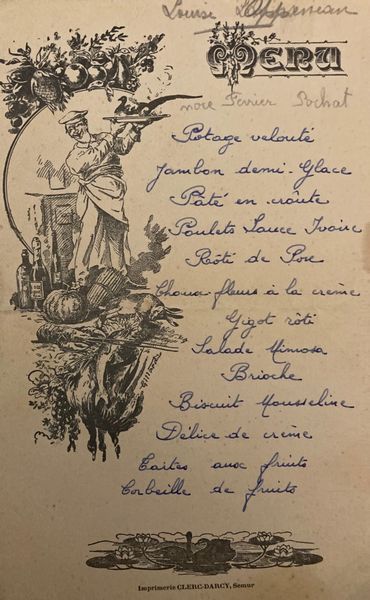 Louise
MENU
noce Ferrier Pochat
Potage velouté
Jambon demi-Glace
Pâté en croûte
Poulets Sauce Ivoire
Rôti de Porc
Choux-fleurs à la crème
Gigot rôti
Salade Mimosa
Brioche
Biscuit Mousseline
Délice de crème
Tartes aux fruits
Corbeille de fruits
Imprimerie CLERC-DARCY, Semur